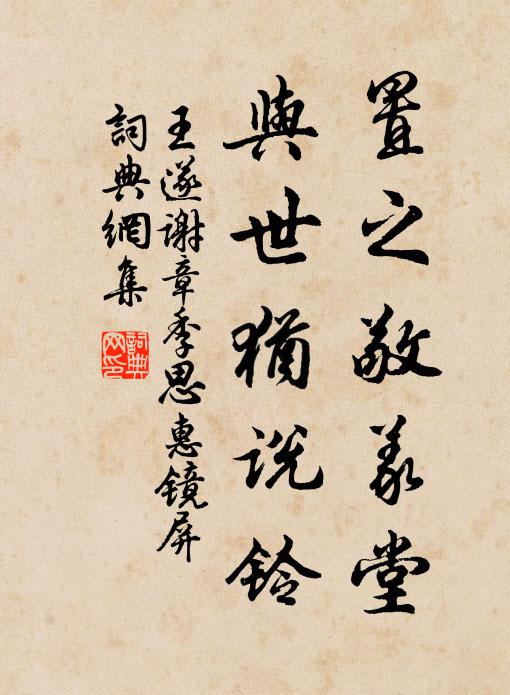 置之敬義堂
與世猶說鈴
王遂謝章季思惠鏡屏
詞典網集
詞典
网印